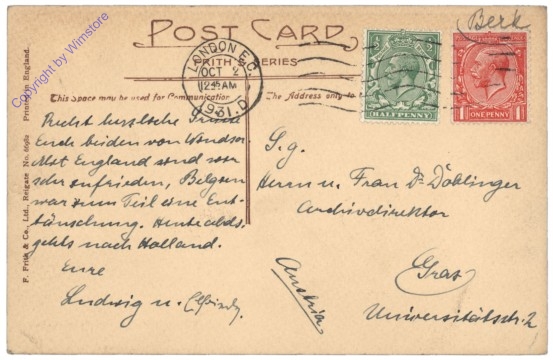 Berk
POST CARD
FRITH SERIES
LONDON E.C.
OCT 2
12 15 AM
1931
D
HALFPENNY
ONE PENNY
Copyright by Wimstore
This Space may be used for Communication
The Address only to
F. Frith & Co., Ltd., Reigate No. Printed in England.
Recht herzliche
Euch beiden von Windsor.
Mit England sind wir
sehr zufrieden, Belgien
war zum Teil eine Ent-
täuschung. Heute abds.
gehts nach Holland.
Eure
Ludwig u.
S.g.
Herrn u. Frau Dr. Döblinger
Archivdirektor
Graz
Universitätsstr. 2
Austria